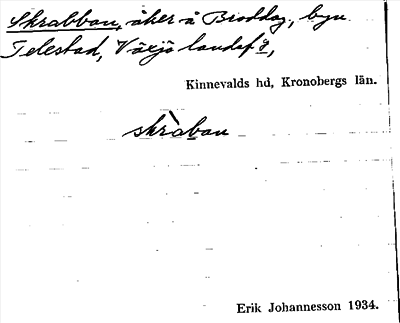 Skrabban, åker å Broddag, byn
Telestad, Växjö landsf ö,
Kinnevalds hd, Kronobergs län.
skràban
Erik Johannesson 1934.